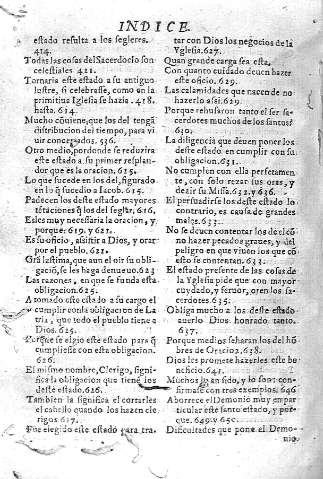 INDICE.
estado resulta a los segleres.
414.
Todas las cosas del Sacerdocio son
celestiales 421.
Tornaria este estado a su antiguo
lustre, si celebrasse, como en la
primitiua Iglesia se hazia. 418.
hasta. 614.
Mucho cõuiene, que los del tengã
distribucion del tiempo, para vi
uir concertados. 536.
Otro medio, por donde se reduzira
este estado a su primer resplan-
dor que es la oracion. 615.
Lo que sucede en los del, figurado
en lo q̃ sucedio a Iacob. 615.
Padecen los deste estado mayores
tẽtaciones q̃ los del seglar, 616.
Esles muy necessaria la oracion, y
porque: 619. y 621.
Es su oficio, assistir a Dios, y orar
por el pueblo. 622.
Grã lastima, que aun el oir su obli-
gaciõ, se les haga de nueuo. 623
Las razones, en que se funda esta
obligacion. 625.
A tomado este estado a su cargo el
cumplir con la obligacion de La-
tria, que todo el pueblo tiene a
Dios. 625.
Porque se eligio este estado para q̃
cumpliesse con esta obligacion.
626.
El mismo nombre, Clerigo, signi-
fica la obligacion que tienẽ los
deste estado. 626.
Tambien la significa el cortarles
el cabello quando los hazen cle
rigos 617.
Fue elegido este estado para tra-
tar con Dios los negocios de la
Yglesia. 627.
Quan grande carga sea esta,
Con quanto cuidado deuen hazer
este oficio. 629.
Las calamidades que nacen de no
hazerlo assi. 629.
Porque rehusaron tanto el ser sa-
cerdotes muchos de los santos?
630.
La diligencia que deuen poner los
deste estado en cumplir con su
obligacion. 631.
No cumplen con ella perfetamen
te, con solo rezar sus oras, y
dezir su Missa. 632. y 636.
El persuadirse los deste estado lo
contrario, es causa de grandes
males. 633.
No se deuen contentar los del cõ
no hazer pecados graues, y del
peligro en que viuen los que cõ
esto se contentan. 633.
El estado presente de las cosas de
la Yglesia pide que con mayor
cuydado, y feruor, oren los sa-
cerdotes. 635.
Obliga mucho a los deste estado
auerlo Dios honrado tanto.
637.
Porque medios seharan los del hõ
bres de Oracion, 638.
Dios les promete hazerles este be
neficio. 641.
Muchos lo an sido, y lo son: con-
firmase con tres exemplos. 646
Aborrece el Demonio muy en par
ticular este santo estado, y por-
que. 649. y 650.
Dificultades que pone el Demo-
nio